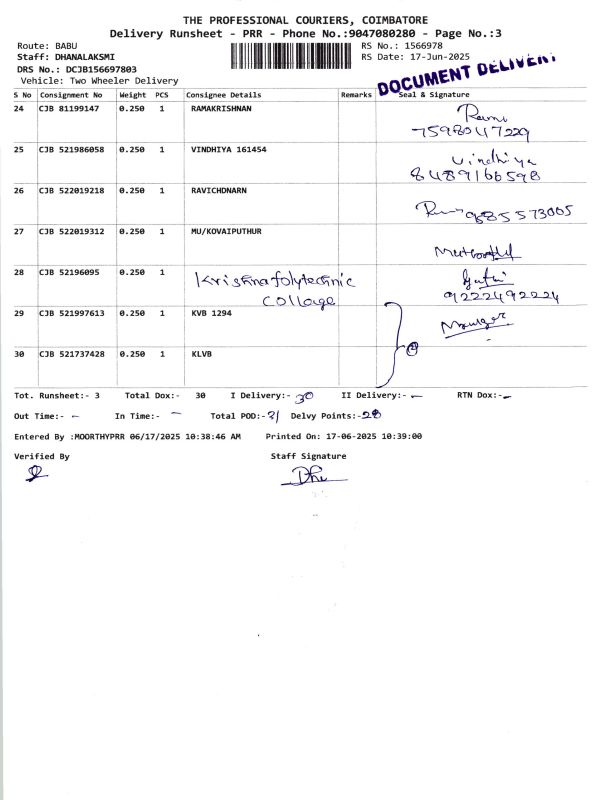 THE PROFESSIONAL COURIERS, COIMBATORE
Delivery Runsheet - PRR - Phone No.:9047080280 - Page No.:3
Route: BABU
RS No.: 1566978
Staff: DHANALAKSMI
RS Date: 17-Jun-2025
DRS No.: DCJB156697803
DOCUMENT DELIVERY
Vehicle: Two Wheeler Delivery
S No Consignment No Weight PCS Consignee Details Remarks Seal & Signature
24 CJB 81199147 0.250 1 RAMAKRISHNAN
7598047229
25 CJB 521986058 0.250 1 VINDHIYA 161454 Vindhiya
8489166598
26 CJB 522019218 0.250 1 RAVICHDNARN
9885573005
27 CJB 522019312 0.250 1 MU/KOVAIPUTHUR
28 CJB 52196095 0.250 1 Krishna Polytechnic
Collage 9222492224
29 CJB 521997613 0.250 1 KVB 1294 Manager
30 CJB 521737428 0.250 1 KLVB
Tot. Runsheet:- 3 Total Dox:- 30 I Delivery:- 30 II Delivery:- - RTN Dox:- -
Out Time:- - In Time:- - Total POD:- 21 Delvy Points:- 28
Entered By :MOORTHYPRR 06/17/2025 10:38:46 AM Printed On: 17-06-2025 10:39:00
Verified By Staff Signature